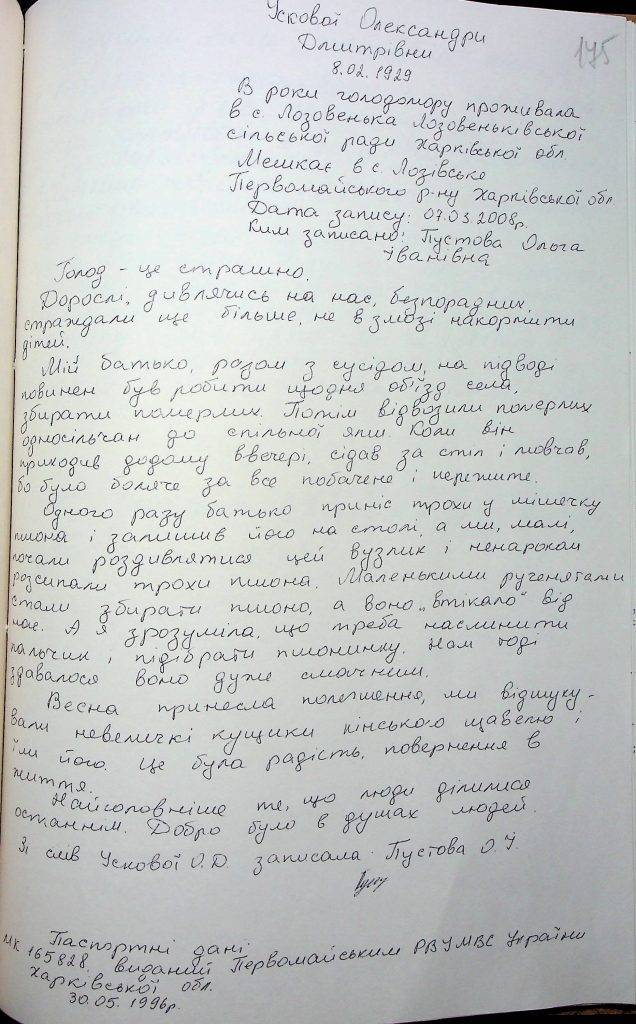 175
Ускової Олександри
Дмитрівни
8.02.1929
В роки голодомору проживала
в с. Лозовенька Лозовеньківської
сільської ради Харківської обл.
Мешкає в с. Лозівське
Первомайського р-ну Харківської обл
Дата запису: 07.03.2008р.
Ким записано: Пустова Ольга
Іванівна
Голод - це страшно.
Дорослі, дивлячись на нас, безпорадних,
страждали ще більше, не в змозі накормити
дітей.
Мій батько, разом з сусідом, на підводі
повинен був робити щодня об'їзд села,
збирати померлих. Потім відвозили померлих
односільчан до спільної ями. Коли він
приходив додому ввечері, сідав за стіл і мовчав,
бо було боляче за все побачене і пережите.
Одного разу батько приніс трохи у мішечку
пшона і залишив його на столі, а ми, малі,
почали роздивлятися цей вузлик і ненароком
розсипали трохи пшона. Маленькими рученятами
стали збирати пшоно, а воно „втікало" від
нас. А я зрозуміла, що треба наслинити
пальчик і підібрати пшонинку. Нам тоді
здавалося воно дуже смачним.
Весна принесла полегшення, ми відшуку-
вали невеличкі кущики кінського щавелю і
їли його. Це була радість, повернення в
життя.
Найголовніше те, що люди ділилися
останнім. Добро було в душах людей.
Зі слів Ускової О.Д. записала Пустова О.І.
Паспортні дані:
МК 165828 виданий Первомайським РВУМВС України
Харківської обл.
30.05.1996р.